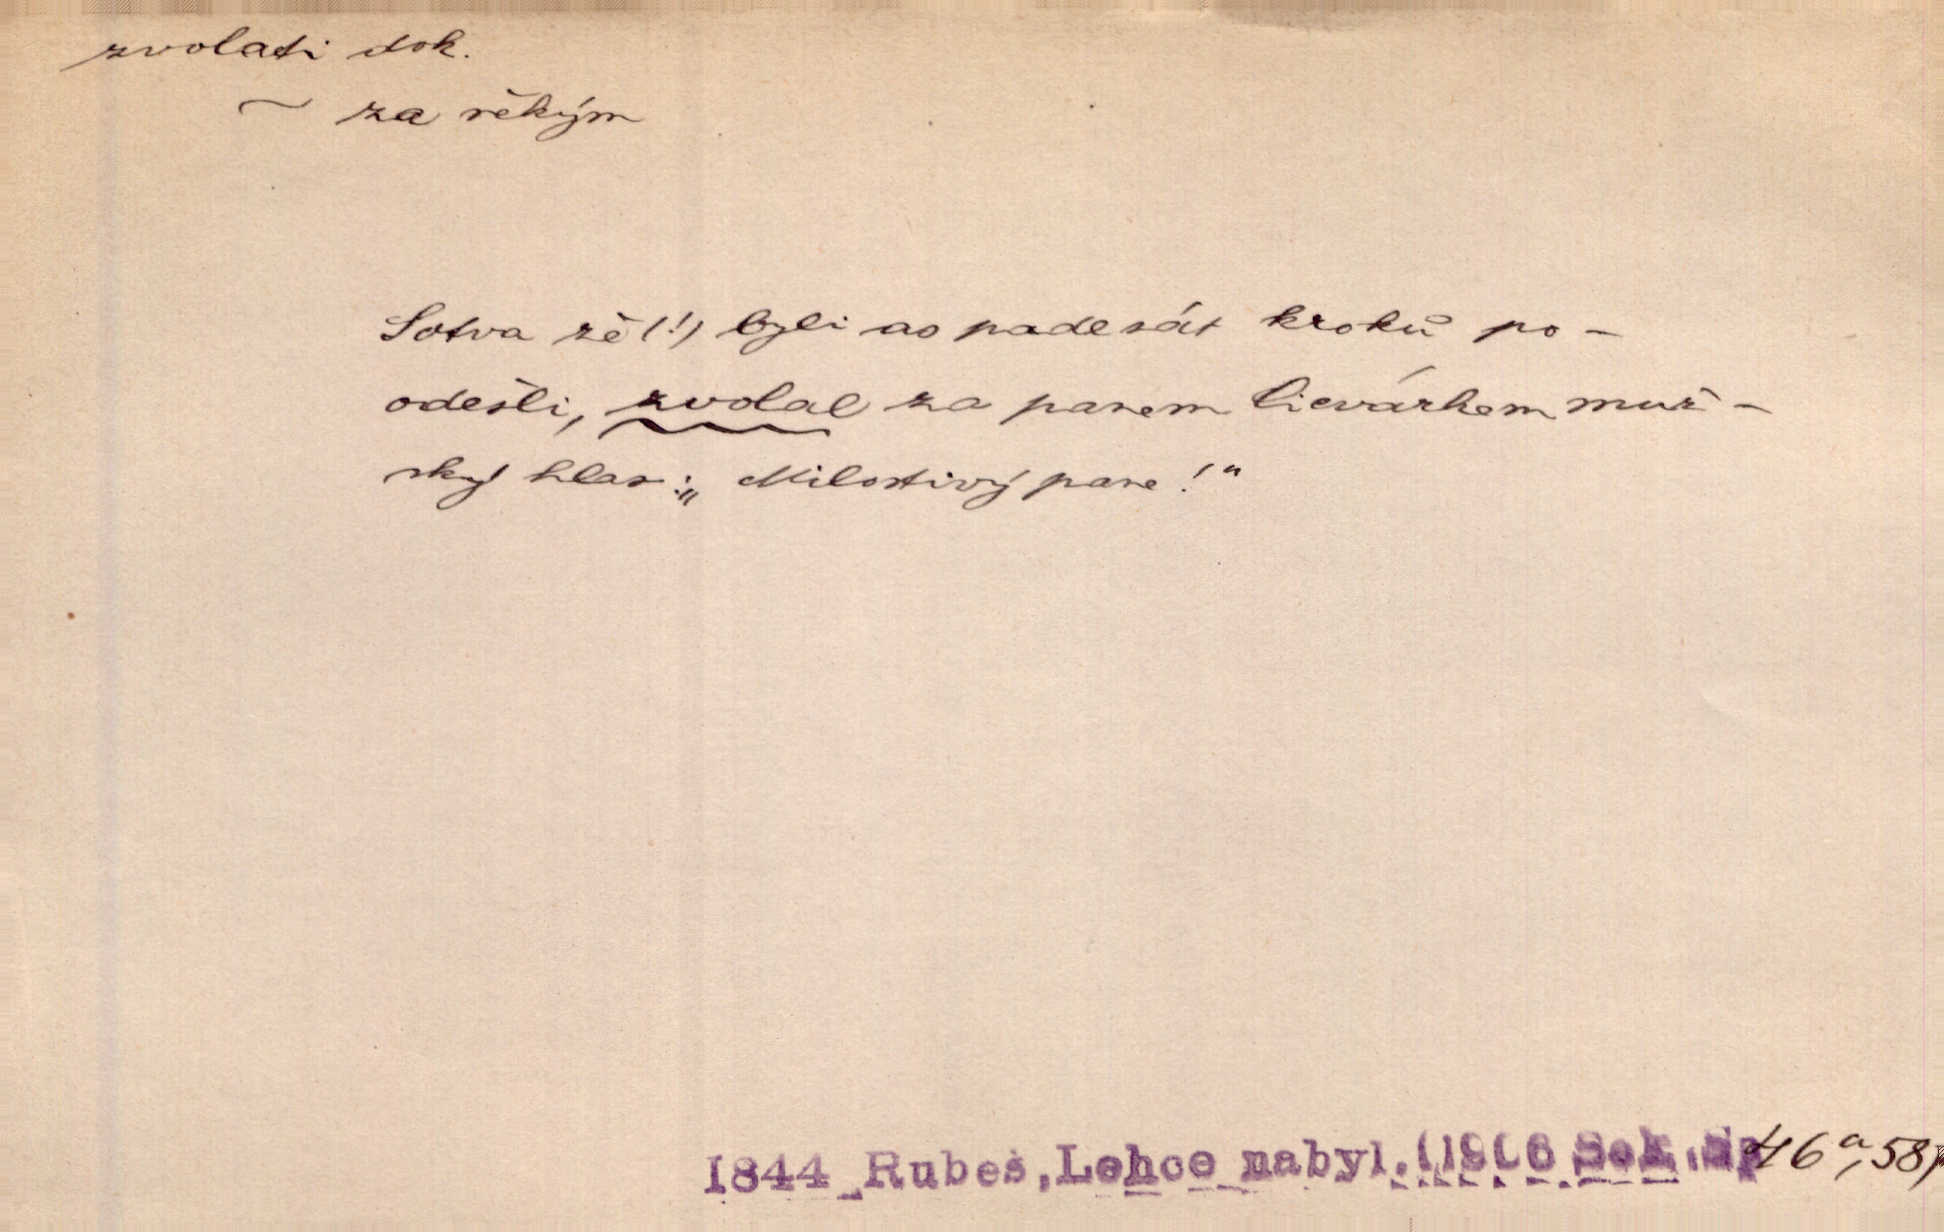 zvolati dok.
~ za někým
Sotva že(!) byli as padesát kroků po-
odešli, zvolal za panem Lievárkem muž-
ský hlas: „Milostivý pane!“
1844 Rubeš, Lehce nabyl. (1906 Sok. Sp 46a, 58)